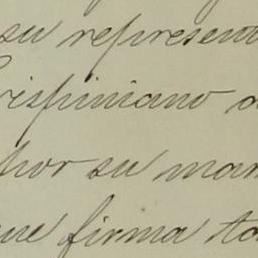 su represent
Crispiniano d
por su man
que firma ta